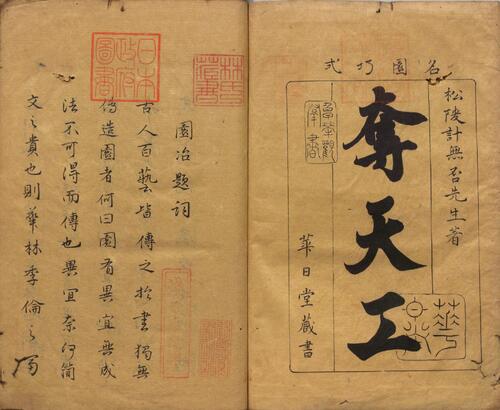 名園巧式
松陵計無否先生著
奪天工
華日堂藏書
園冶題詞
古人百藝皆傳之於書獨無
傳造園者何曰園有異宜無成
法不可得而傳也異宜奈何簡
文之貴也則華林季倫之
日本
政府
圖書